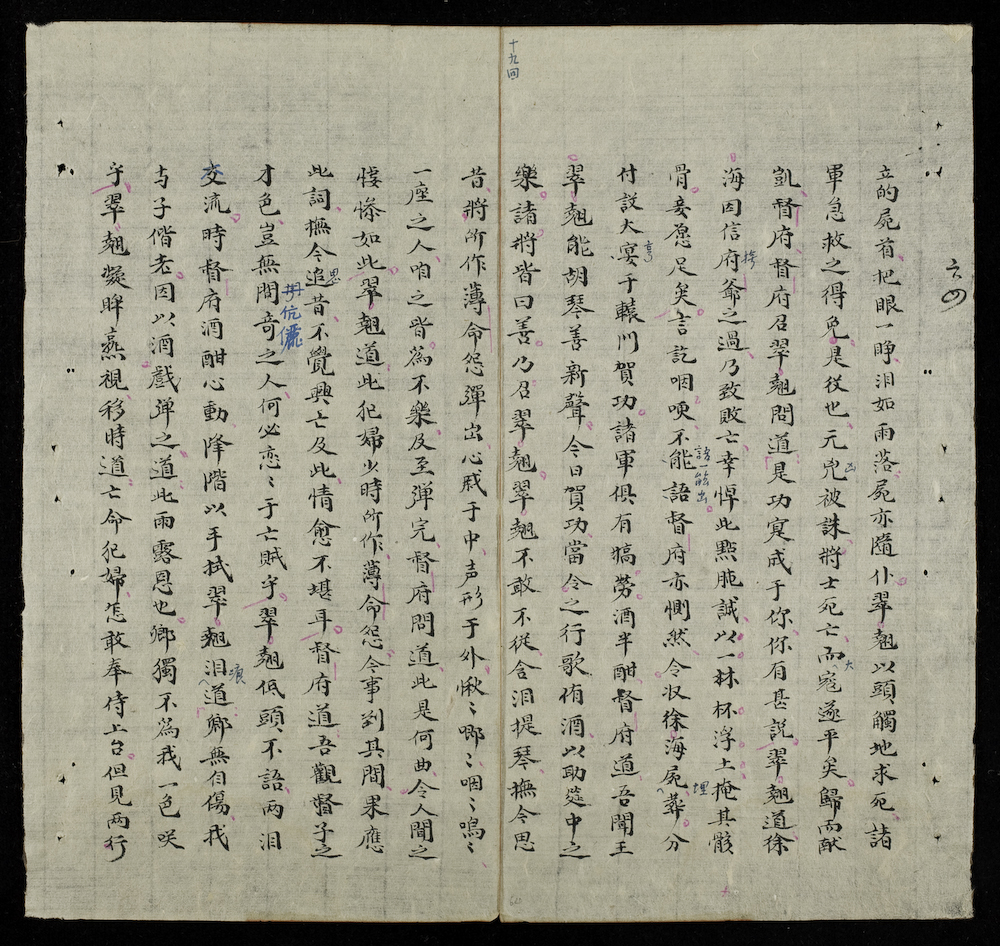 十九回
六四
立的屍首把眼一睁泪如雨落屍亦隨仆翠翹以頭觸地求死諸
軍急救之得免是役也元兇被誅將士死亡而大寇遂平矣歸而献
凱督府督府召翠翹問道是功寔成于你你有甚説翠翹道徐
海因信府爺之過乃致敗亡幸悼此㸃肫誠以一抔浮土掩其骸
骨妾愿足矣言訖咽哽不能語督府亦惻然令收徐海屍葬分
付設大宴于轅川賀功諸軍俱有犒勞酒半酣督府道吾聞王
翠翹能胡琴善新聲今日賀功當令之行歌侑酒以助筵中之
樂諸將皆曰善乃召翠翹翠翹不敢不從含泪提琴撫今思
昔將所作薄命怨彈出心戚于中声形于外愀〻唧〻咽〻嗚〻
一座之人咱之皆為不樂及至弹完督府問道此是何曲令人聞之
悽慘如此翠翹道此犯婦少時所作薄命怨今事到其間果應
此詞撫今追思昔不覺興亡及此情愈不堪耳督府道吾觀督子之
才色豈無問奇之人何必恋〻于亡賊乎翠翹低頭不語两泪
交流時督府酒酣心動降階以手拭翠翹泪痕道卿無自傷我
与子偕老因以酒戲弹之道此雨露恩也卿獨不為我一色咲
乎翠翹凝眸熹視移時道亡命犯婦怎敢奉侍上台但見两行